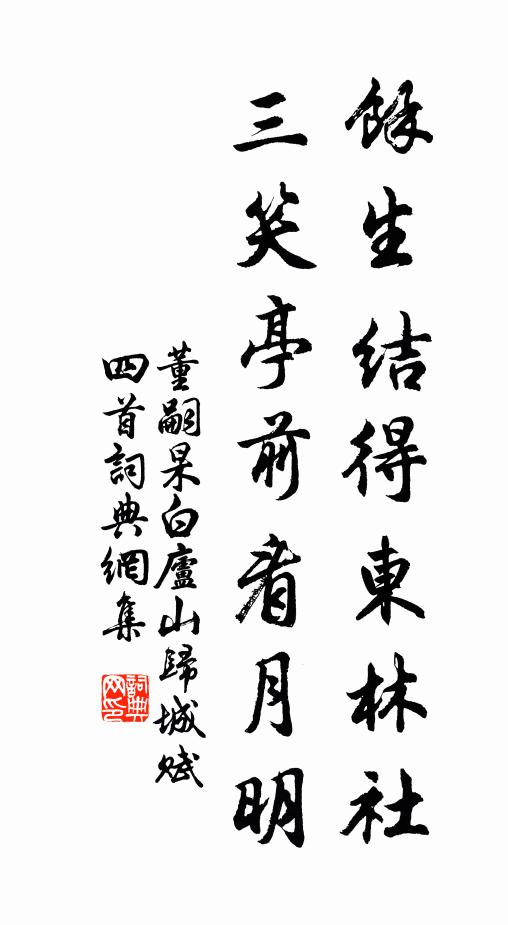 餘生結得東林社
三笑亭前看月明
董嗣杲白廬山歸城賦
四首詞典網集
詞典
网印